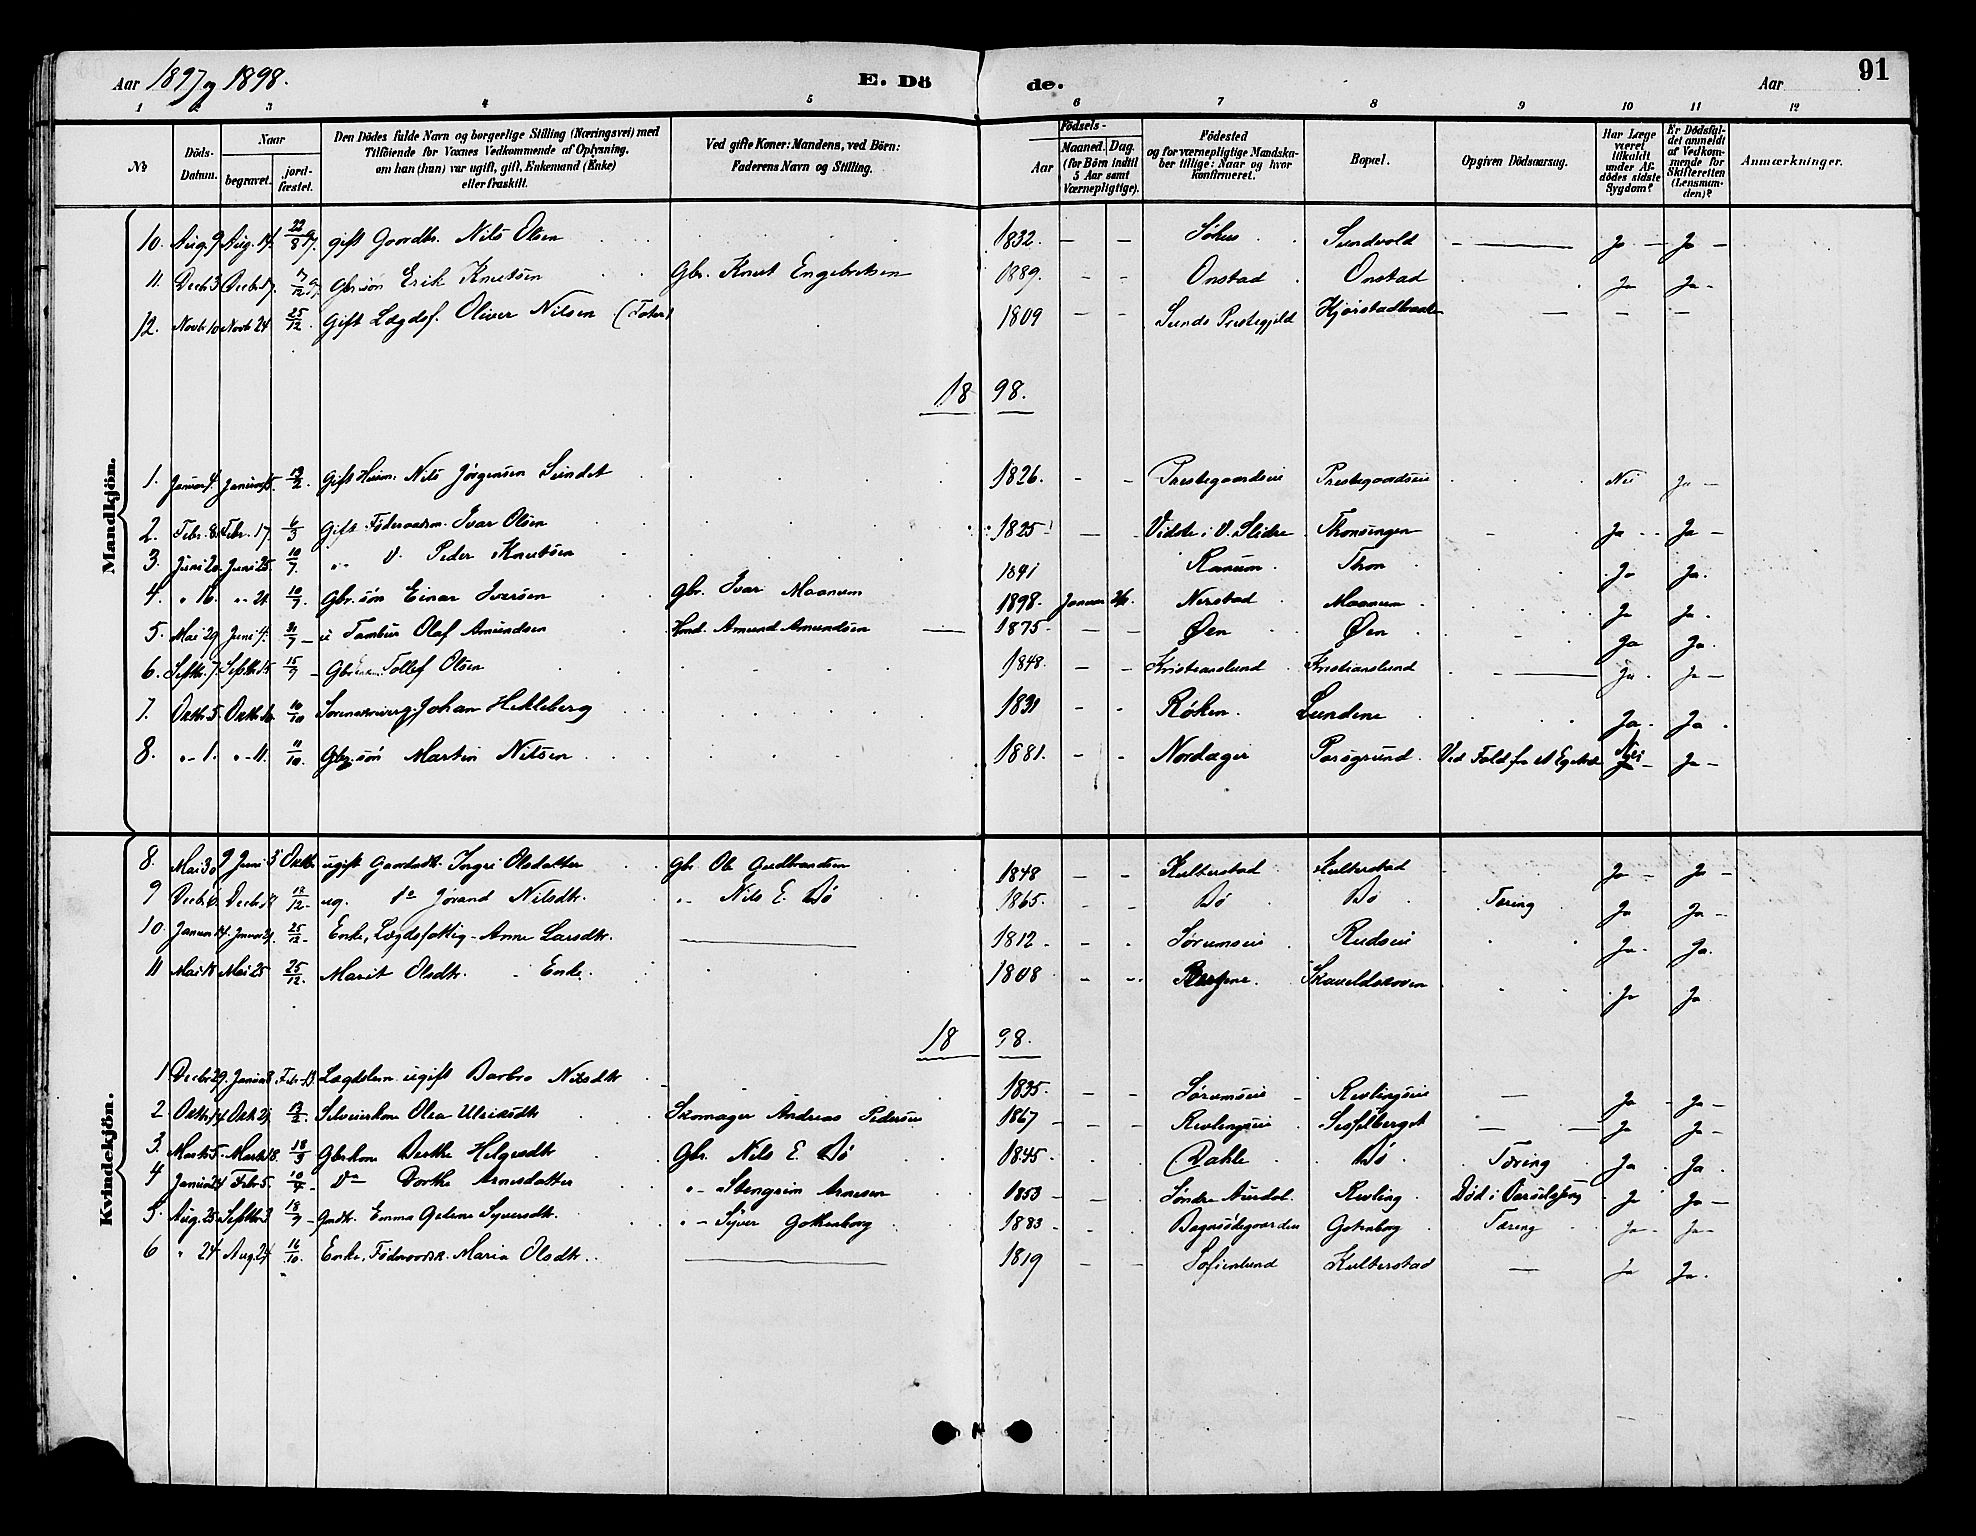 Aar 1897 og 1898.
E. Dö de.
Aar
91
1 2 3 4 5 6 7 8 9 10 11 12
No
Döds-Datum.
Naar
begravet.
jord-fæstet.
Den Dödes fulde Navn og borgerlige Stilling (Næringsvei) med
Tilföiende for Voxnes Vedkommende af Oplysning,
om han (hun) var ugift, gift, Enkemand (Enke)
eller fraskilt.
Ved gifte Koner: Mandens, ved Börn:
Faderens Navn og Stilling.
Födsels-
Aar
Maaned. Dag.
(for Börn indtil
5 Aar samt
Værnepligtige).
Födested
og for værnepligtige Mandska-
ber tillige: Naar og hvor
konfirmeret.
Bopæl.
Opgiven Dödsaarsag.
Har Læge
været
tilkaldt
under Af-
dödes sidste
Sygdom?
Er Dödsfal-
det anmeldt
af Vedkom-
mende for
Skifteretten
(Lensman-
den)?
Anmærkninger.
Mandkjön.
10. Aug. 9 Aug. 17. 22/8 97. gift Gaardbr. Nils Olsen 1832. — — Sundvold — Ja — Ja —
11. Decbr. 3 Decbr. 17. Gbr. søn Erik Knutsen Gbr. Knut Engebretsen 1889. - - Onstad Onstad Ja Ja -
12. Novb. 10 Novb. 24 25/12. Gift Lægdsf. Oliver Nilsen 1809 — — Sunds Præstegjeld — — —
1898.
1. Januar 4. Januar 15. gift Nils Jørgensen Sundet 1826. - - Præstegaardseie Præstegaardseie Nei Ja —
2. Febr. 8. Febr. 17 6/3 gift Føderaadsm. Ivar Olsen 1825 — — V. Slidre Thonsengen Ja Ja —
3. Juni 20. Juni 25 10/7. Peder Knutsen 1841 Ranum Thon Ja Ja.
4. " 16. " 21 10/7. Gbr. søn Einar Iversen Gbr. Ivar Maanum 1898. Januar Nerstad Maanum Ja Ja.
5. Mai 29 Juni 31/7 — u Tambur Olaf Amundsen Hmd. Amund Amundsen — 1875 — — Øen Øen Ja Ja.
6. Septbr. 7. Septbr. 15. — Tollef Olsen 1848. - - Kristianslund Kristianslund — Ja. Ja —
7. Oktbr. 5. Oktbr. 10/10 Sorenskriver Johan Hekleberg 1831 - - Røken. Lundene Ja. Ja.
8. " 1. " 11. 11/10. Gbr. søn Martin Nilsen 1881. - - Nordager Porsgrund Ved Fald fra Nei Ja —
Kvindekjön.
8. Mai 30 Juni Oktbr ugift Gaardudtr. Ingri Olsdatter Gbr. Ole Gudbrandsen 1848 - - Kulterstad Kulterstad Ja — Ja —
9 Decbr. Decbr. 17 ug. do Jørand Nilsdtr. " Nils E. Bø 1865. - - Bø Bø Tæring Ja Ja —
10. Januar 14. Januar 21. Enke, Lægdsfattig - Anne Larsdtr. — 1812 - - Sørumseie Rudseie Ja. Ja.
11 Mai Mai 25 25/12. Marit Olsdtr. Enke. 1808 - - Ja Ja
1898.
1 Decbr. 29. Januar 8. Febr. 13 Lægdslem ugift Barbro Nilsdtr 1835. - - Sørumseie Revlingseie — Ja - Ja —
2. Oktbr. 14 Okt. 21 Olea Ulriksdtr Skomager Andreas Pedersen 1867 - - Revlingseie — Ja Ja —
3. Marts 5. Marts 18/3 Gbrkone Berthe Helgesdtr Gbr. Nils E. Bø 1845. - - Dahle Bø Tæring Ja Ja
4 Januar 24 Febr. 5. — do Dorthe Arnesdatter " Stengrim Arnesen 1853 - - Søndre Aurdal Revling Død i Barselseng Ja Ja —
5. Aug. 25. Septbr. 3 Emma Geline Syversdtr. " Syver Gothenborg 1883 - - Bagnsødegaarden Gotenborg Tæring Ja — Ja —
6 " 24 Aug. 16/10 Enke, Føderaadsk. Maria Olsdtr. — 1819 - - Sofienlund Kulterstad — Ja Ja.